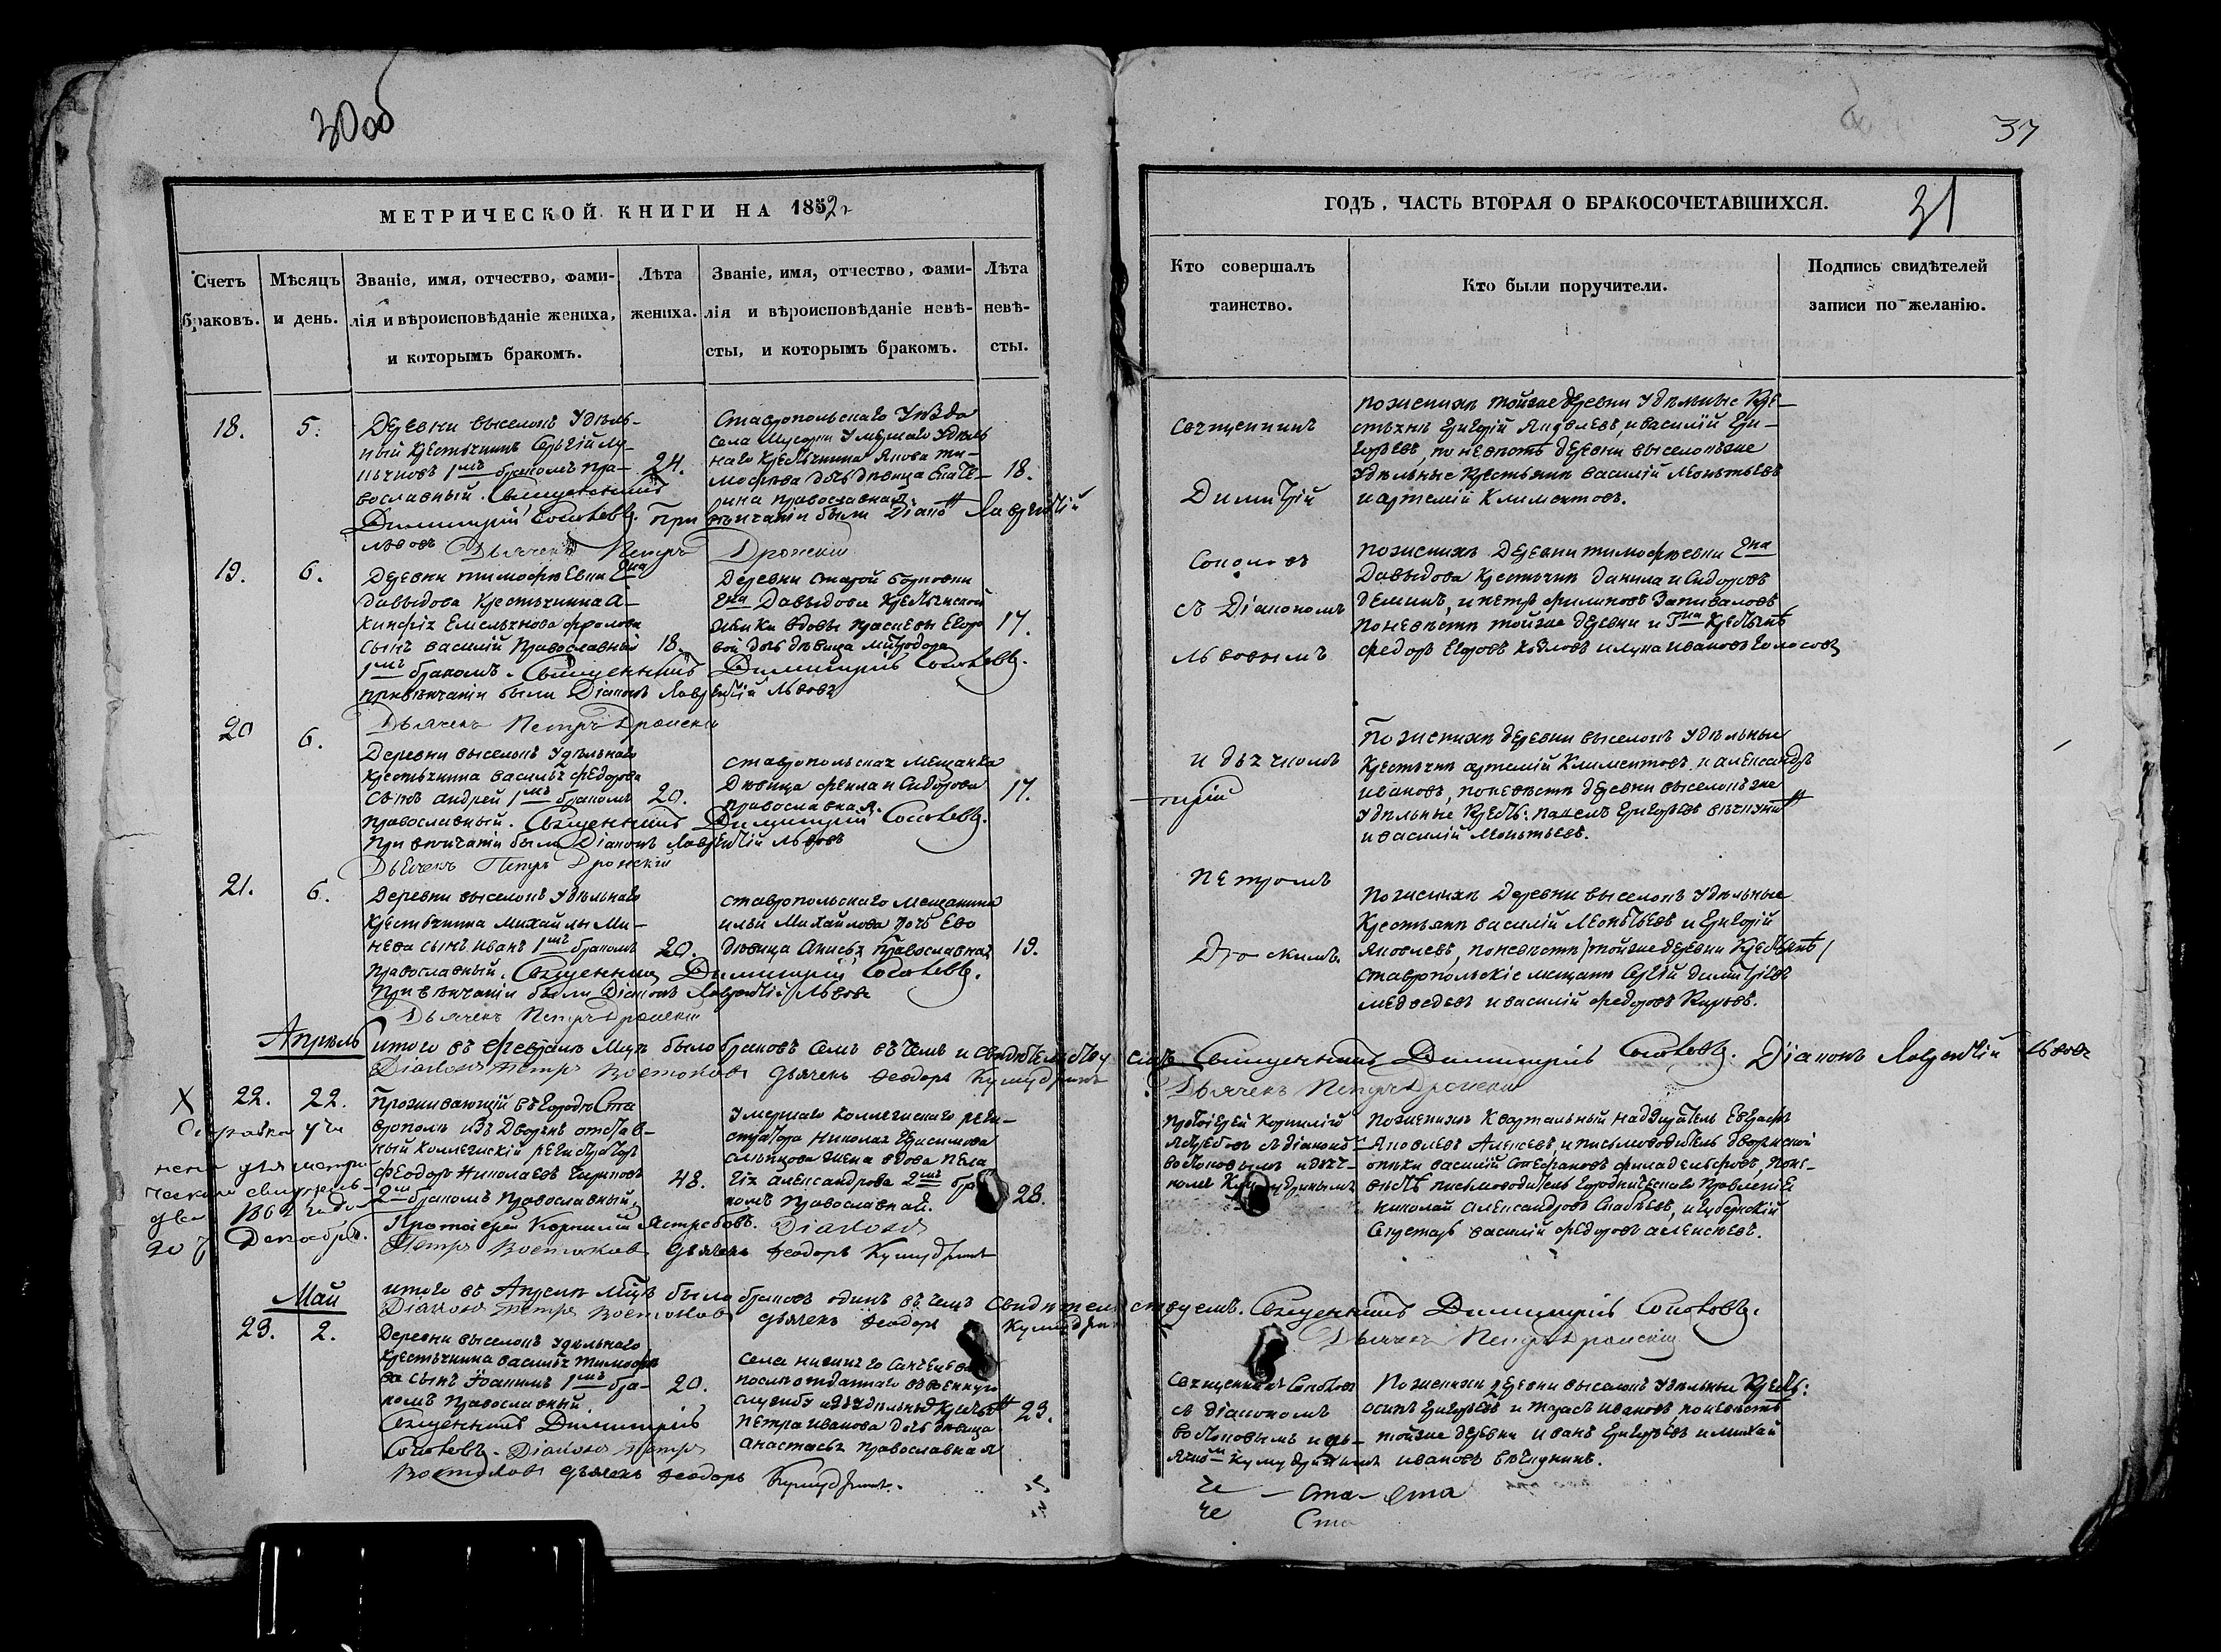 30 об
37
31
МЕТРИЧЕСКОЙ КНИГИ НА 1852 г
ГОДЪ, ЧАСТЬ ВТОРАЯ О БРАКОСОЧЕТАВШИХСЯ.
Счетъ браковъ.
Мѣсяцъ и день.
Званіе, имя, отчество, фами-
лія и вѣроисповѣданіе жениха,
и которымъ бракомъ.
Лѣта
жениха.
Званіе, имя, отчество, фами-
лія и вѣроисповѣданіе невѣ-
сты, и которымъ бракомъ.
Лѣта
невѣ-
сты.
Кто совершалъ
таинство.
Кто были поручители.
Подпись свидѣтелей
записи по желанію.
18.
5.
Деревни выселокъ Удѣль-
ный крестьянинъ Сергій
1мъ бракомъ пра-
вославный. Священникъ
Димитрій Соколовъ. При вѣнчаніи были Діаконъ Лаврентій
Львовъ Дьячекъ Петръ Дронскій
24.
Ставропольскаго Уѣзда
села Мусорки Умершаго Удѣль
наго крестьянина Якова Ти-
мофѣева дочь дѣвица Екате-
рина православная.
18.
Священникъ
Димитрій
Соколовъ
съ Діакономъ
Львовымъ
и дьячкомъ
Петромъ
Дронскимъ.
По женихѣ тойже деревни Удѣльные кре-
стьяне Григорій Яковлевъ, и Василій Гри-
горьевъ, по невѣстѣ деревни выселокъ же
Удѣльные крестьяне Василій Леонтьевъ
и Артемій Климентовъ.
19.
6.
Деревни Тимофѣевки Гна
Давыдова крестьянина А-
кинфія Емельянова Фролова
сынъ Василій Православный
1мъ бракомъ. Священникъ Димитрій Соколовъ.
При вѣнчаніи были Діаконъ Лаврентій Львовъ
Дьячекъ Петръ Дронскій
18.
Деревни Старой
Гна Давыдова крестьянской
вдовы Егоро
вой дочь дѣвица Митродора
17.
По женихѣ деревни Тимофѣевки Гна
Давыдова крестьяне Данила Сидоровъ
Деминъ, и Петръ Филиповъ Запиваловъ
по невѣстѣ тойже деревни и Гна крестьяне
Федоръ Егоровъ Козловъ и Лука Ивановъ Голосовъ
20
6.
Деревни выселокъ Удѣльнаго
крестьянина Василья Федорова
сынъ Андрей 1мъ бракомъ
православный. Священникъ Димитрій Соколовъ.
При вѣнчаніи были Діаконъ Лаврентій Львовъ
Дьячекъ Петръ Дронскій
20.
Ставропольская мещанка
Дѣвица Фекла Сидорова
православная.
17.
По женихѣ деревни выселокъ Удѣльные
крестьяне Артемій Климентовъ и Александръ
Ивановъ, по невѣстѣ деревни выселокъ же
Удѣльные крест: Павелъ Григорьевъ
и Василій Леонтьевъ.
21.
6.
Деревни выселокъ Удѣльнаго
крестьянина Михайлы Ми-
нева сынъ Иванъ 1мъ бракомъ
православный. Священникъ Димитрій Соколовъ.
При вѣнчаніи были Діаконъ Лаврентій Львовъ
Дьячекъ Петръ Дронскій
20.
Ставропольскаго мещанина
Ильи Михайлова дочь Ево
дѣвица Анисья Православная
19.
По женихѣ Деревни выселокъ Удѣльные
крестьяне Василій Леонтьевъ и Григорій
Яковлевъ, по невѣстѣ /тойже деревни крестьяне/
ставропольскіе мещане Сергій Димитріевъ
Медведевъ и Василій Федоровъ
Апрѣль
Итого въ Февралѣ Мцѣ было браковъ семь въ чемъ и свидѣтельству
емъ Священникъ Димитрій Соколовъ. Діаконъ Лаврентій Львовъ
Діаконъ Петръ Востоковъ Дьячекъ Феодоръ Кумудринъ
Дьячекъ Петръ Дронскій
Х
22.
22.
Справка
1861 года
Декабря.
Проживающій въ городѣ Ста
врополѣ изъ Дворянъ отстав-
ный коллежскій регистраторъ
Феодоръ Николаевъ
2мъ бракомъ Православный
Протоіерей Корнилій Ястребовъ. Діаконъ
Петръ Востоковъ Дьячекъ Феодоръ Кумудринъ
48.
Умершаго коллежскаго реги-
стратора Николая Герасимова
жена вдова Пела
гія Александрова 2мъ бра
комъ Православная.
28.
Протоіерей Корнилій
Ястребовъ съ діаконо-
Востоковымъ и дьяч-
комъ Кумудринымъ
По женихѣ квартальный надзиратель Евграфъ
Яковлевъ и письмоводитель дворянской
опеки Василій Стефановъ Филадельфовъ, по не-
вѣстѣ письмоводитель Городническаго Правленія
Николай Александровъ и Губернскій
Секретарь Василій Федоровъ Алексѣевъ.
Май
Итого въ Апрелѣ Мцѣ было браковъ одинъ въ чемъ свидѣтель
ствуемъ. Священникъ Димитрій Соколовъ.
Діаконъ Петръ Востоковъ дьячекъ Феодоръ Кумудрин
Дьячекъ Петръ Дронскій
23.
2.
Деревни выселокъ Удѣльнаго
крестьянина Василья Тимофѣе
ва сынъ Іоакимъ 1мъ бра-
комъ Православный.
Священникъ Димитрій
Соколовъ. Діаконъ Петръ
Востоковъ дьячекъ Феодоръ Кумудринъ.
20.
Села Нижняго
послѣ отданнаго въ военную
службу изъ удѣльныхъ крестьян
Петра Иванова дочь дѣвица
Анастасья Православная
23.
Священникъ Соколовъ
съ діакономъ
Востоковымъ и дь-
ячкомъ Кумудринымъ
По женихѣ деревни выселокъ Удѣльные крест:
Осипъ Григорьевъ и Тарасъ Ивановъ, по невѣстѣ
тойже деревни Иванъ Григорьевъ и Михай
Ивановъ
че — ста — ста
че Ста